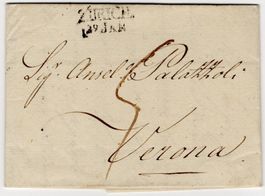 ZÜRICH
29 JAN
Sig. Anselo Palazzoli
5
Verona